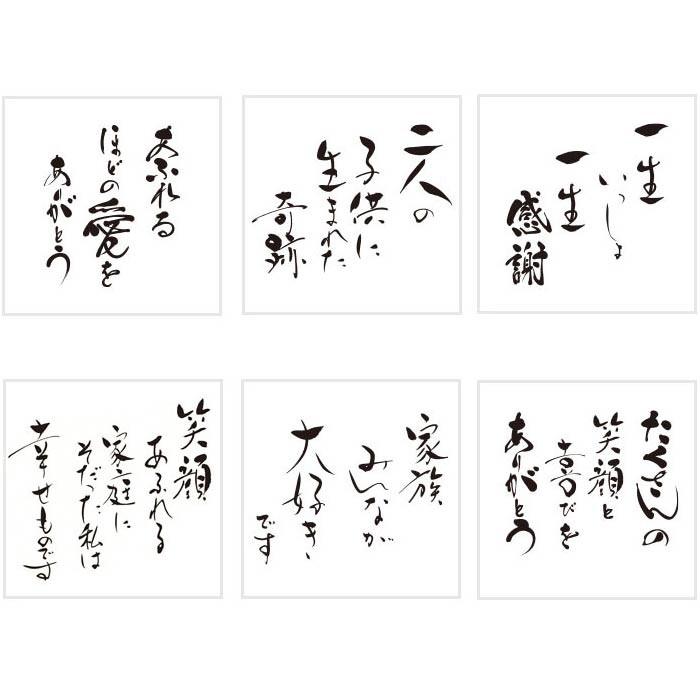 あふれる
ほどの愛を
ありがとう
二人の
子供に
生まれた
奇跡
一生
いっしょ
一生
感謝
笑顔
あふれる
家庭に
そだった私は
幸せものです
家族
みんなが
大好き
です
たくさんの
笑顔と
喜びを
ありがとう